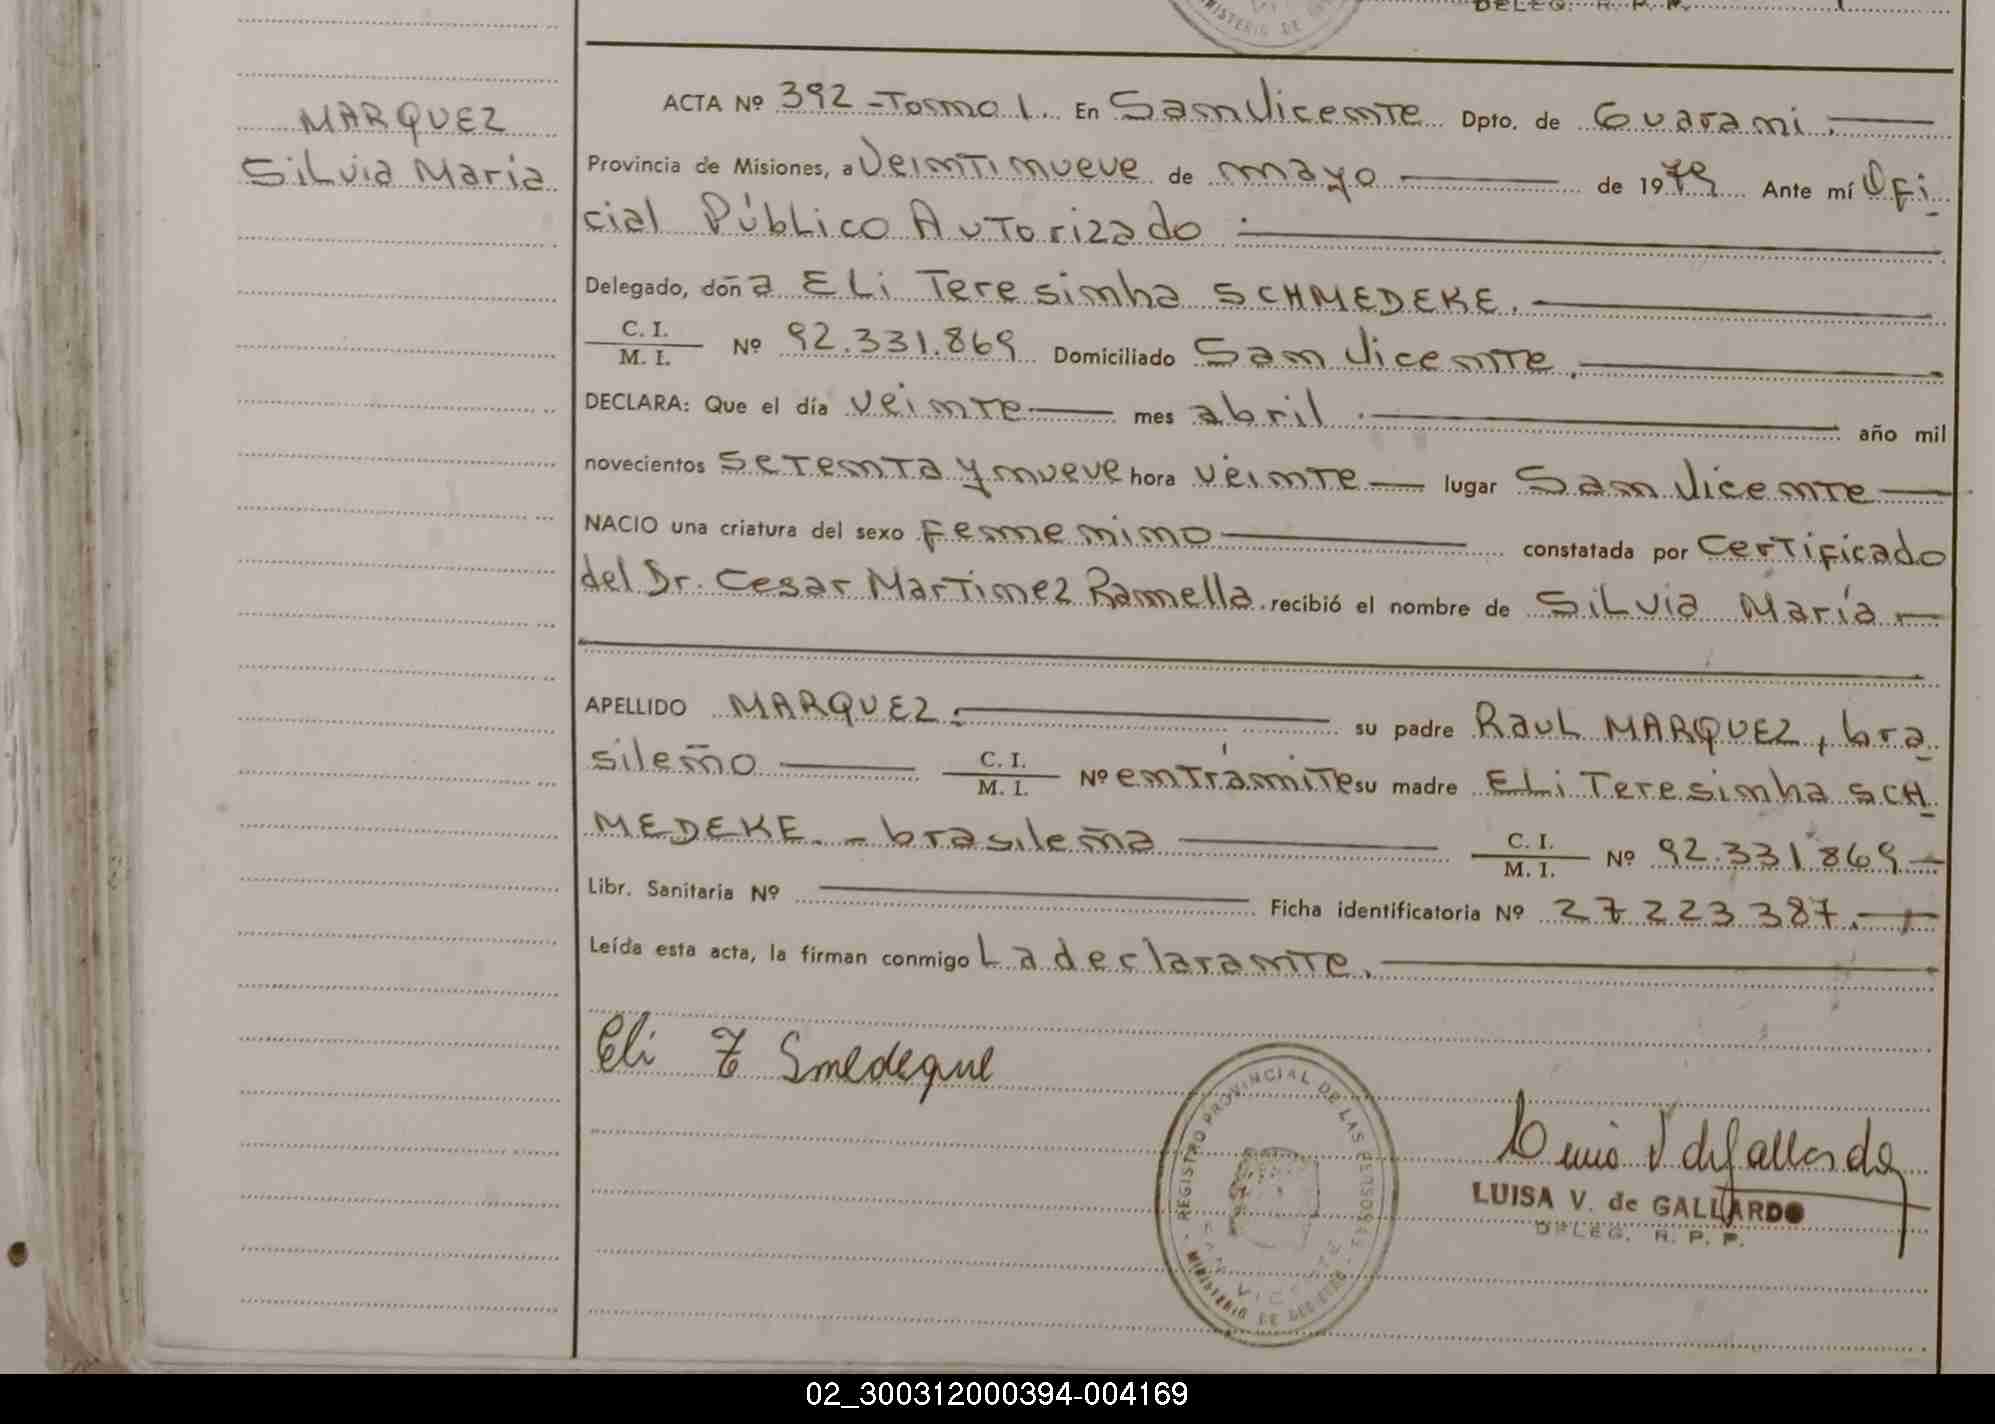 DELEG. R. P. P.
MINISTERIO DE
MARQUEZ
Silvia Maria
ACTA Nº 392 - Tomo 1. En San Vicente Dpto. de Guarani.
Provincia de Misiones, a Veintinueve de mayo de 1979 Ante mí Ofi-
cial Público Autorizado.
Delegado, doña Eli Teresinha SCHMEDEKE.
C. I.
M. I. Nº 92.331.869 Domiciliado San Vicente.
DECLARA: Que el día veinte mes abril. año mil
novecientos setenta y nueve hora veinte lugar San Vicente
NACIO una criatura del sexo femenino constatada por Certificado
del Dr. Cesar Martinez Ramella. recibió el nombre de Silvia María
APELLIDO MARQUEZ. su padre Raul MARQUEZ, bra-
sileño C. I.
M. I. Nº en trámite su madre Eli Teresinha SCH-
MEDEKE. - brasileña C. I.
M. I. Nº 92.331.869
Libr. Sanitaria Nº Ficha identificatoria Nº 27 223 387.
Leída esta acta, la firman conmigo La declarante.
Eli T Smedeque
REGISTRO PROVINCIAL DE LAS PERSONAS
SAN VICENTE
MINISTERIO DE GOBIERNO
Luisa V de Gallardo
LUISA V. de GALLARDO
DELEG. R. P. P.
02_300312000394-004169